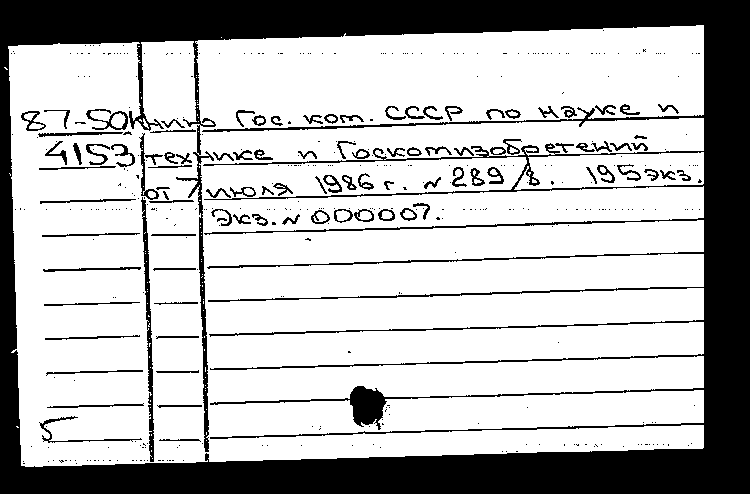 87-50 книно Гос. ком. СССР по науке и
4153 технике и Госкомизобретений
от 7 июля 1986 г. N 289/8. 195 экз.
Экз. N 000007.
5